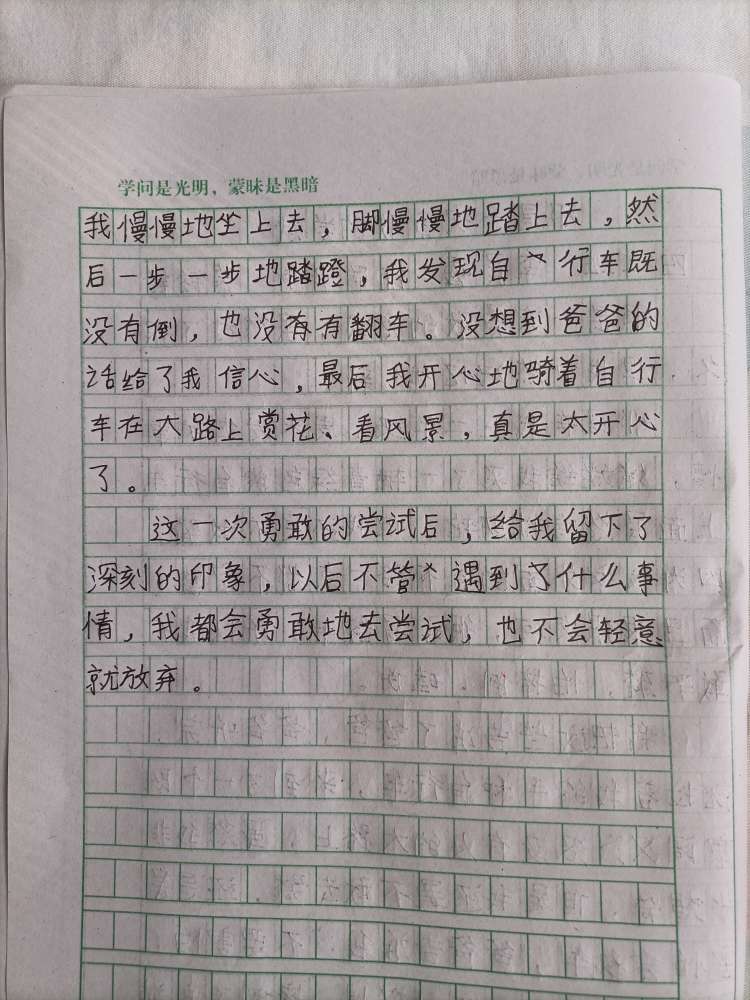 学问是光明，蒙昧是黑暗
我慢慢地坐上去，脚慢慢地踏上去，然
后一步一步地踏蹬，我发现自行车既
没有倒，也没有有翻车。没想到爸爸的
话给了我信心，最后我开心地骑着自行
车在大路上赏花、看风景，真是太开心
了。
这一次勇敢的尝试后，给我留下了
深刻的印象，以后不管遇到了什么事
情，我都会勇敢地去尝试，也不会轻意
就放弃。